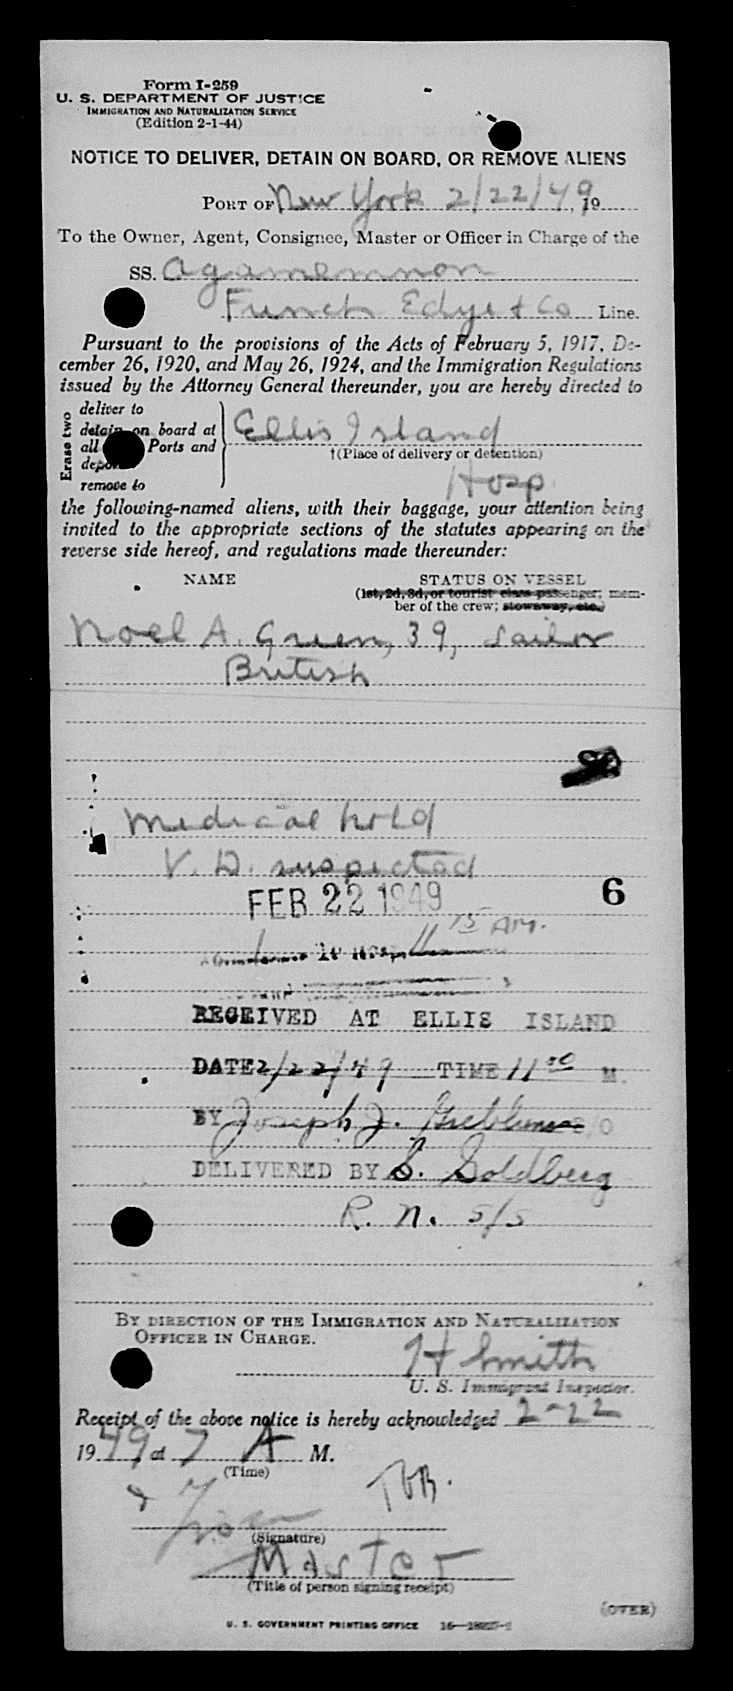 Form I-259
U. S. DEPARTMENT OF JUSTICE
IMMIGRATION AND NATURALIZATION SERVICE
(Edition 2-1-44)
NOTICE TO DELIVER, DETAIN ON BOARD, OR REMOVE ALIENS
PORT OF New York 2/22/49, 19
To the Owner, Agent, Consignee, Master or Officer in Charge of the
SS. Agamemnon
Funch Edye & Co Line.
Pursuant to the provisions of the Acts of February 5, 1917, De-
cember 26, 1920, and May 26, 1924, and the Immigration Regulations
issued by the Attorney General thereunder, you are hereby directed to
Erase two
deliver to
detain on board at
all Ports and
deport
remove to
Ellis Island
†(Place of delivery or detention)
Hosp
the following-named aliens, with their baggage, your attention being
invited to the appropriate sections of the statutes appearing on the
reverse side hereof, and regulations made thereunder:
NAME STATUS ON VESSEL
(1st, 2d, 3d, or tourist class passenger; mem-
ber of the crew; stowaway, etc.)
Noel A. Green, 39, sailor
British
Medical hold
V. D. suspected
FEB 22 1949
6
11 15 AM.
RECEIVED AT ELLIS ISLAND
DATE 2/22/49 TIME 11 30 M.
BY Joseph J.
DELIVERED BY S. Goldberg
R. N. S/S
BY DIRECTION OF THE IMMIGRATION AND NATURALIZATION
OFFICER IN CHARGE.
H Smith
U. S. Immigrant Inspector.
Receipt of the above notice is hereby acknowledged 2-22
1949 at 7 A M.
(Time)
(Signature)
Master
(Title of person signing receipt)
(OVER)
U. S. GOVERNMENT PRINTING OFFICE